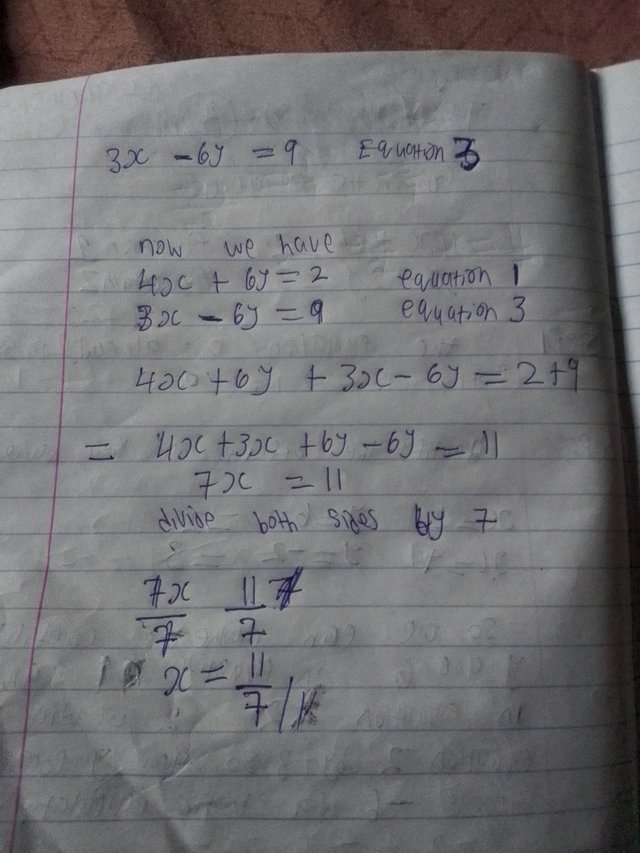 3x - 6y = 9 Equation 3
now we have
4x + 6y = 2 equation 1
3x - 6y = 9 equation 3
4x + 6y + 3x - 6y = 2 + 9
= 4x + 3x + 6y - 6y = 11
7x = 11
divide both sides by 7
7x/7 11/7
x = 11/7